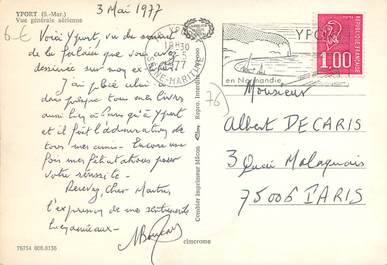 YPORT (S.-Mar.)
Vue générale aérienne
3 Mai 1977
6-€
Voici Yport, vu du sommet
de la falaise que vous avez
dessinée sur mon
J'ai placé celui
presque tous mes livres
aussi bien à qu'à Yport
et il fait l'admiration de
tous mes amis. Encore une
fois mes félicitations pour
votre réussite.
Recevez, Cher Maître,
l'expression de mes sentiments
76754 008.0136
cimcrome
Combier Imprimeur Mâcon
Repro. Interdite
18H30
1977
SEINE-MARITIME
YPORT
en Normandie
REPUBLIQUE FRANCAISE
1,00
76
Monsieur
Albert DECARIS
3 Quai Malaquais
75006 PARIS